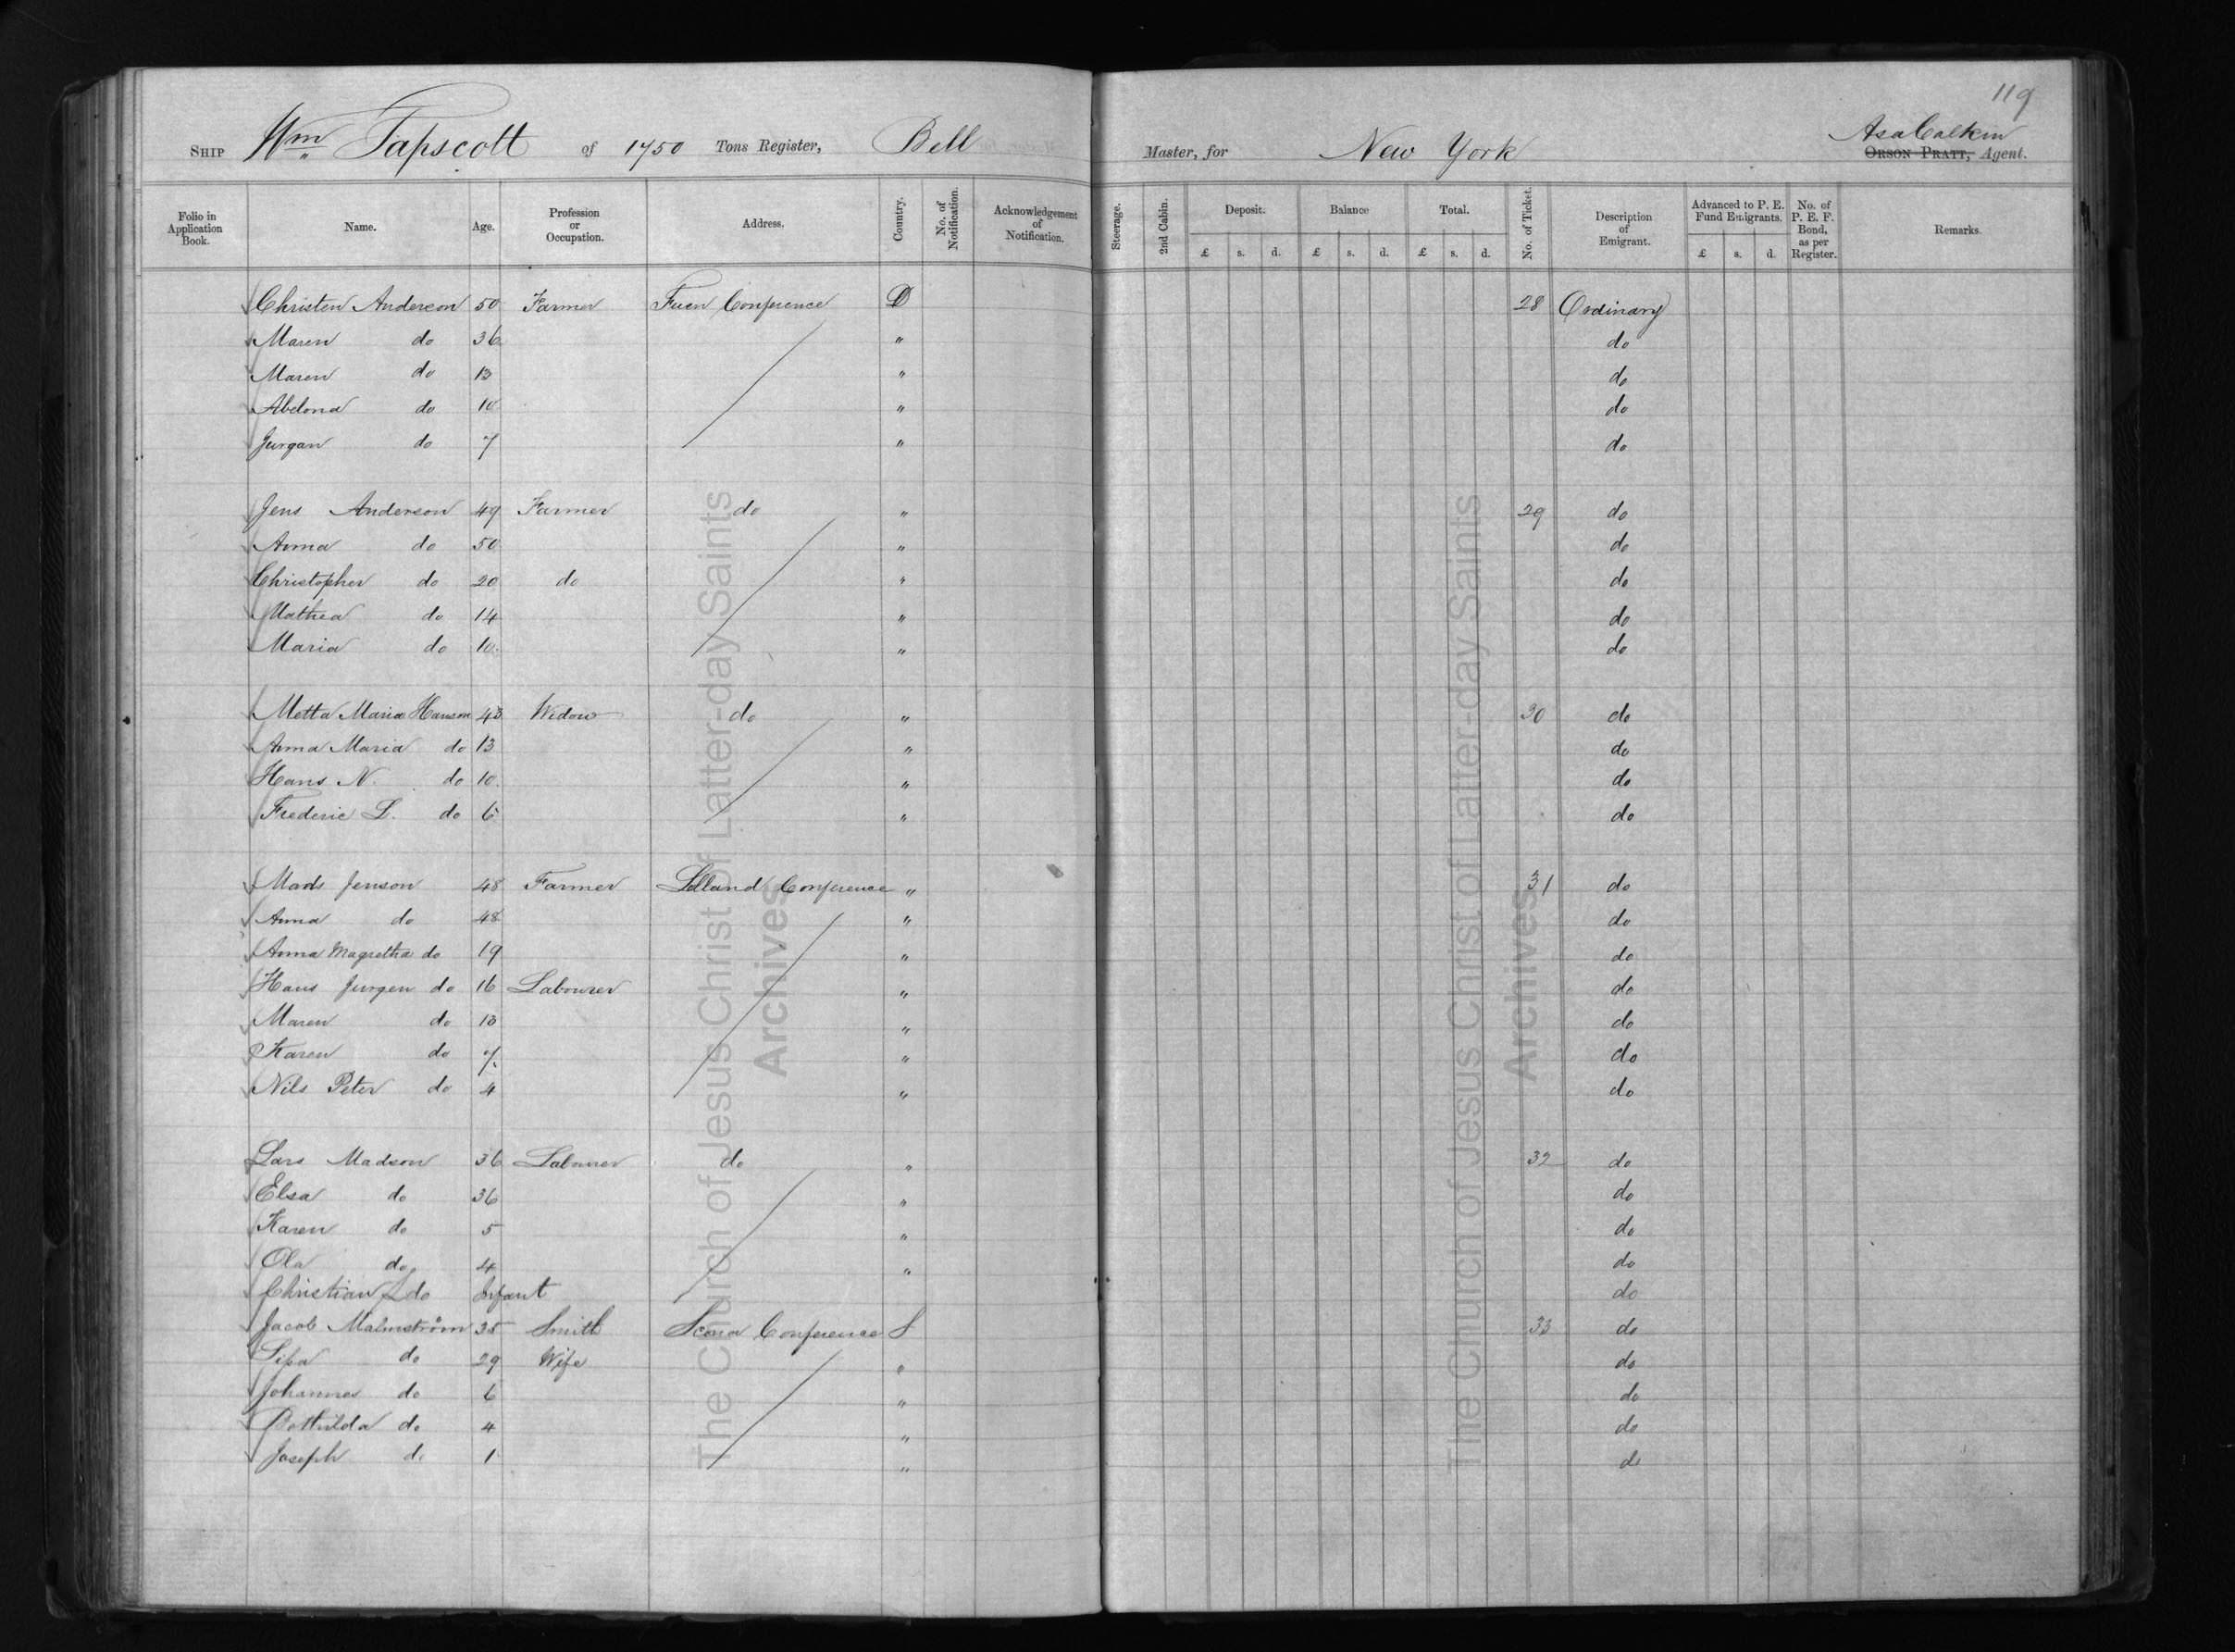 119
SHIP Wm Tapscott of 1750 Tons Register, Bell Master, for New York Asa Calkin ORSON PRATT, Agent.
Folio in Application Book. Name. Age. Profession or Occupation. Address. Country. No. of Notification. Acknowledgement of Notification. Steerage. 2nd Cabin. Deposit. £ s. d. Balance £ s. d. Total. £ s. d. No. of Ticket. Description of Emigrant. Advanced to P. E. Fund Emigrants. £ s. d. No. of P. E. F. Bond, as per Register. Remarks.
Christen Anderson 50 Farmer Fuen Conference D 28 Ordinary
Maren do 36 " do
Maren do 13 " do
Abelona do 10 " do
Jurgan do 7 " do
Jens Anderson 49 Farmer do " 29 do
Anna do 50 " do
Christopher do 20 do " do
Mathea do 14 " do
Maria do 10 " do
Metta Maria Hanson 43 Widow do " 30 do
Anna Maria do 13 " do
Hans N. do 10 " do
Frederic L. do 6 " do
Mads Jenson 48 Farmer Lolland Conference " 31 do
Anna do 48 " do
Anna Magretha do 19 " do
Hans Jurgen do 16 Labourer " do
Maren do 13 " do
Karen do 7 " do
Nils Peter do 4 " do
Lars Madson 36 Labourer do " 32 do
Elsa do 36 " do
Karen do 5 " do
Ola do 4 " do
Christian do Infant do
Jacob Malmström 35 Smith Scona Conference S 33 do
Sisa do 29 Wife " do
Johannes do 6 " do
Bothilda do 4 " do
Joseph do 1 " do
The Church of Jesus Christ of Latter-day Saints
Archives
The Church of Jesus Christ of Latter-day Saints
Archives